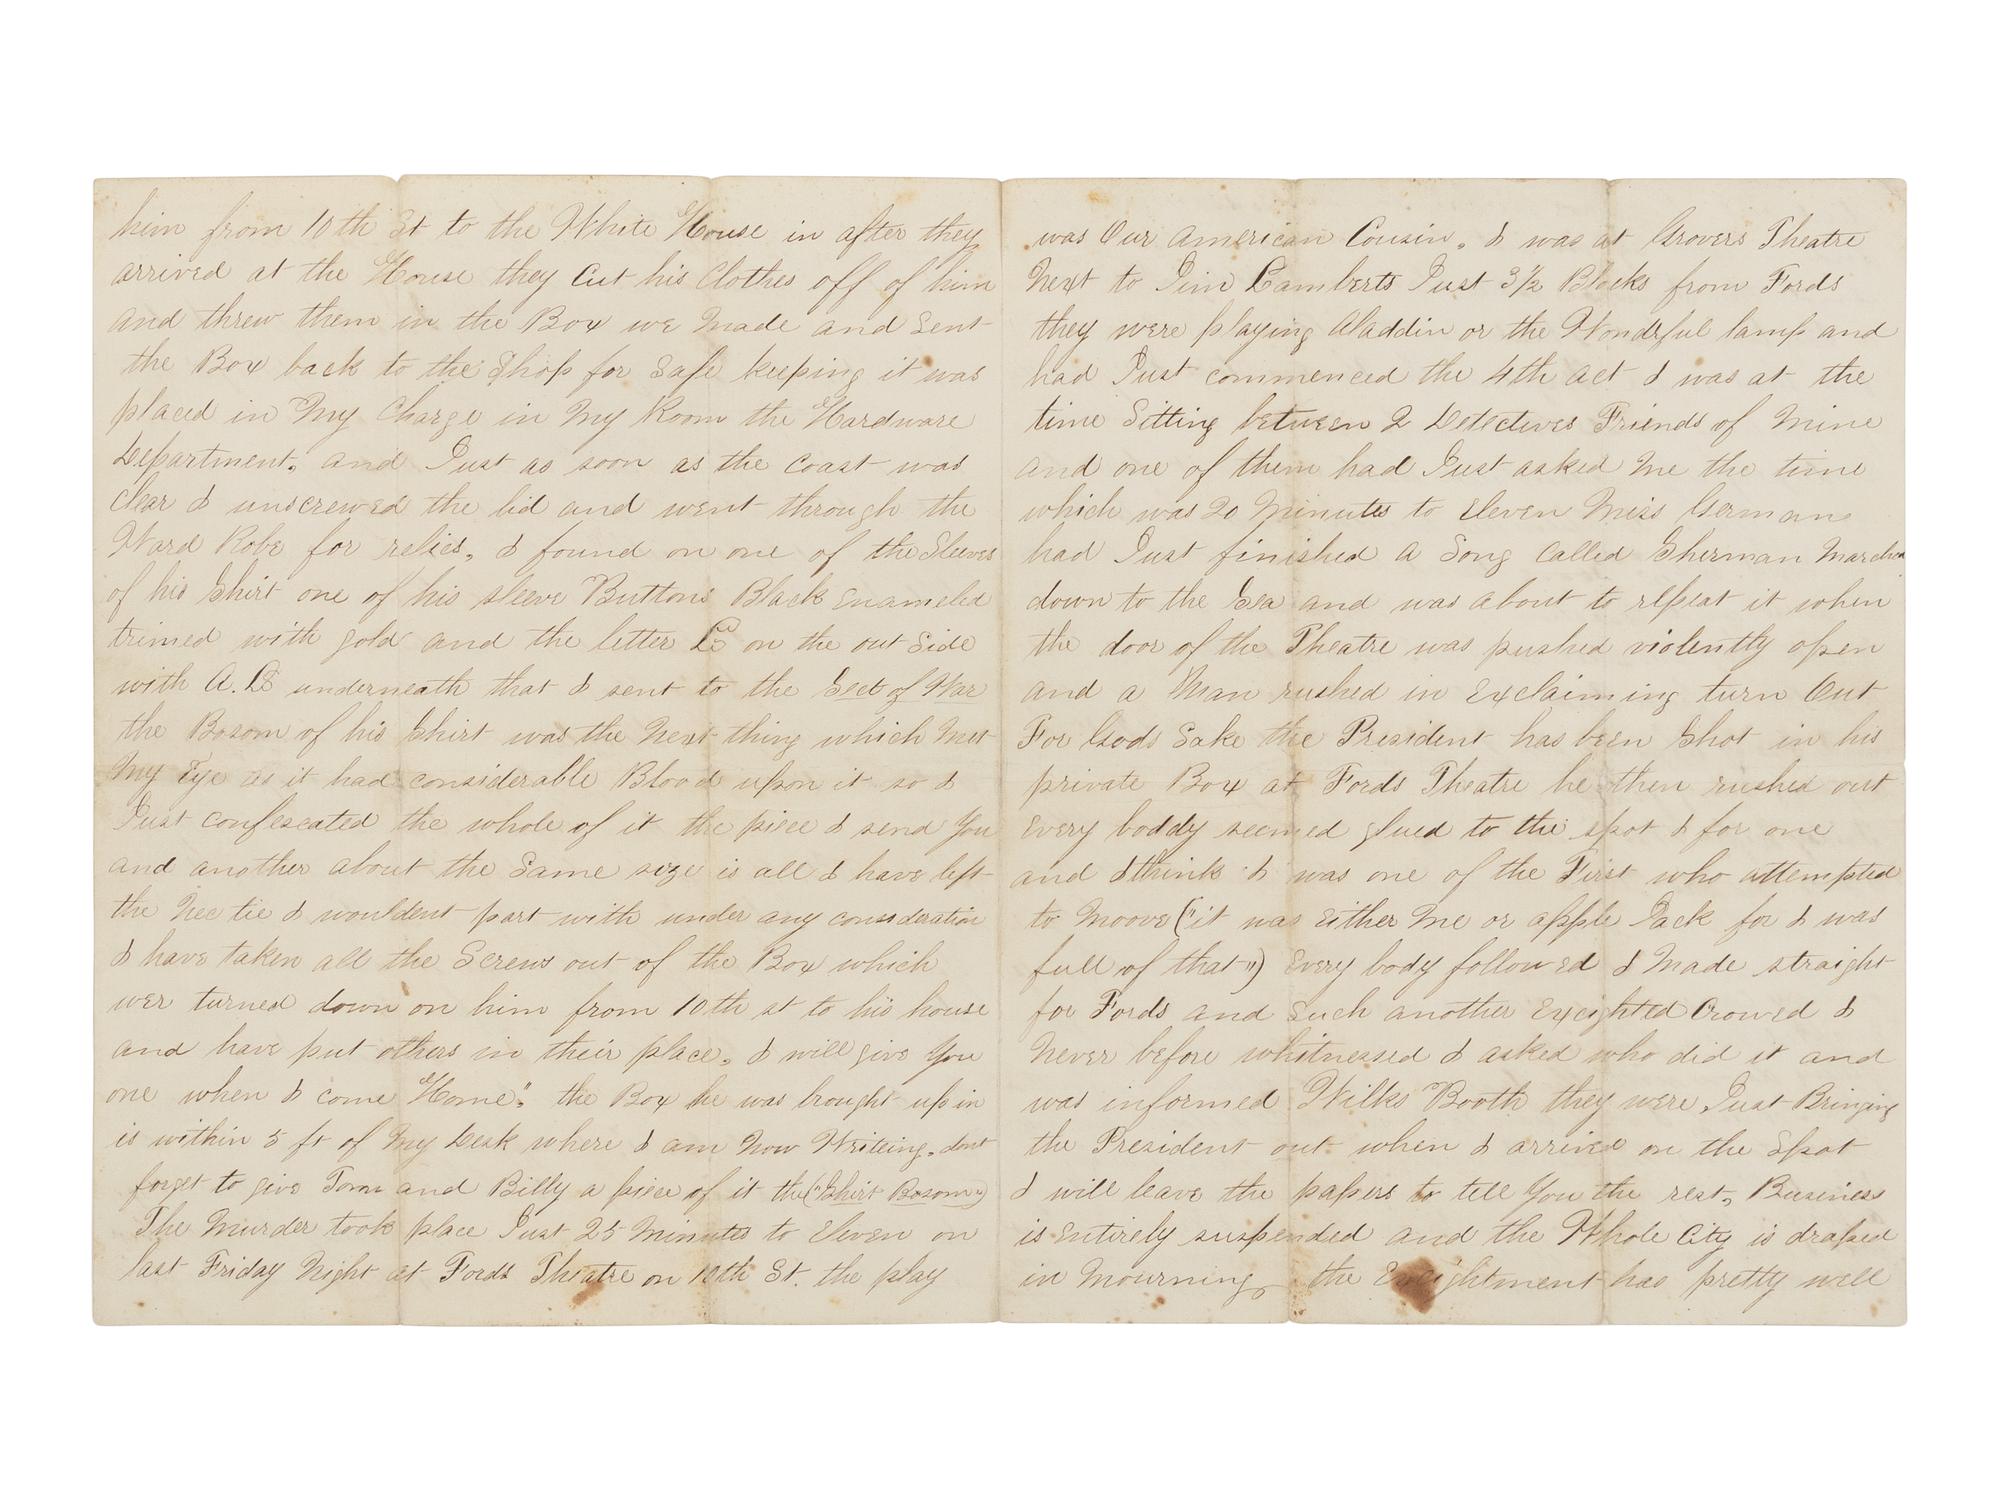 him from 10th St to the White House in after they
arrived at the House they Cut his Clothes off of him
and threw them in the Box we Made and Sent
the Box back to the Shop for Safe keeping it was
placed in My Charge in My Room the Hardware
Department, and Just as soon as the Coast was
Clear I unscrewed the lid and went through the
Ward Robe for relics, I found on one of the Sleeves
of his Shirt one of his sleeve Buttons Black Enameled
trimed with gold and the letter L on the out Side
with A.L underneath that I sent to the Sect of War
the Bosom of his Shirt was the Next thing which Met
My Eye as it had considerable Blood upon it so I
Just confescated the whole of it the piece I send You
and another about the Same size is all I have left
the Nec tie I wouldent part with under any consideration
I have taken all the Screws out of the Box which
wer turned down on him from 10th st to his house
and have put others in their place, I will give You
one when I come Home" the Box he was brought up in
is within 5 ft of My Desk where I am Now Writeing, dont
forget to give Tom and Billy a piece of it the ("Shirt Bosom")
The Murder took place Just 25 Minutes to Eleven on
last Friday Night at Fords Theatre on 10th St. the play
was Our American Cousin, I was at Grovers Theatre
Next to Jim Lamberts Just 3½ Blocks from Fords
they were playing Aladdin or the Wonderful lamp and
had Just commenced the 4th Act I was at the
time Sitting between 2 Detectives Friends of Mine
and one of them had Just asked Me the time
which was 20 Minutes to Eleven Miss German
had Just finished a Song Called Sherman Marches
down to the Sea and was about to repeat it when
the door of the Theatre was pushed violently open
and a Man rushed in Exclaiming turn Out
For Gods Sake the President has been Shot in his
private Box at Fords Theatre he then rushed out
Every boddy seemed glued to the spot I for one
and I think I was one of the First who attempted
to Moove ("it was Either Me or apple Jack for I was
full of that") Every body followed I Made straight
for Fords and Such another Excighted Crowed I
Never before whitnessed I asked who did it and
was informed Wilks Booth they were Just Bringing
the President out when I arrived on the Spot
I will leave the papers to tell You the rest, Business
is Entirely suspended and the Whole City is draped
in Mourning the Excightment has pretty well